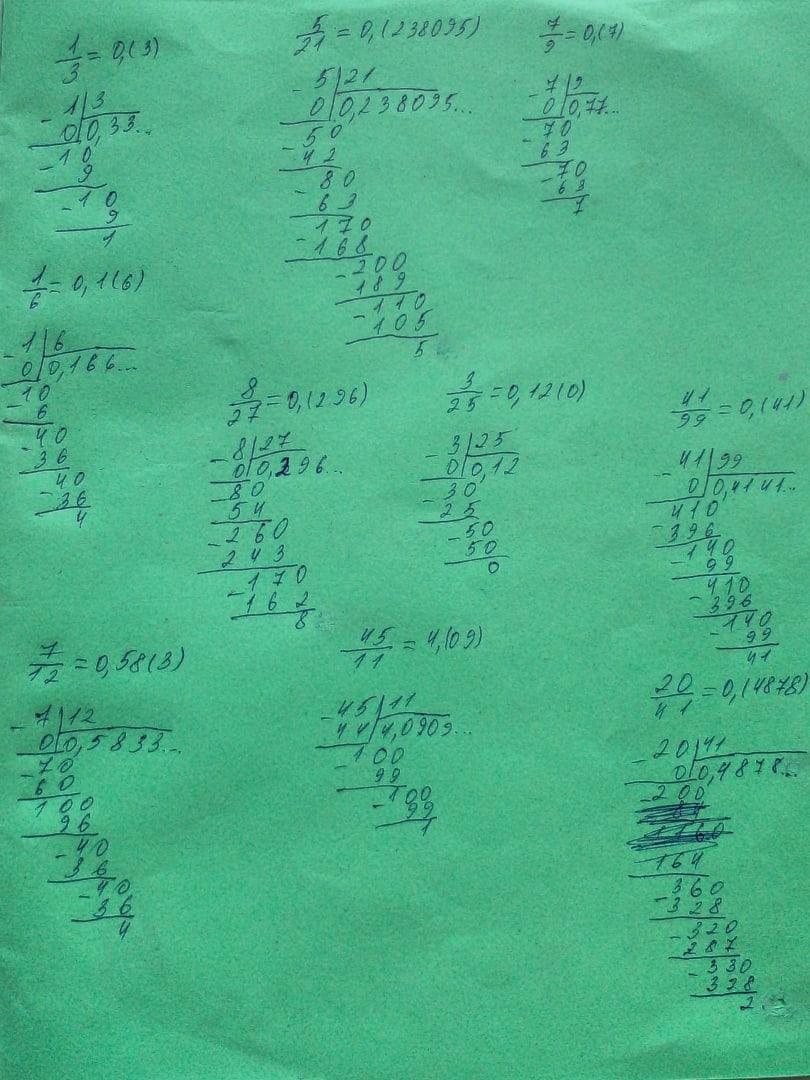 1/3 = 0,(3)
- 1 | 3
0 | 0,33...
- 10
9
- 10
9
1
5/21 = 0,(238095)
- 5 | 21
0 | 0,238095...
- 50
42
- 80
63
- 170
168
- 200
189
- 110
105
5
7/9 = 0,(7)
- 7 | 9
0 | 0,77...
- 70
63
- 70
63
7
1/6 = 0,1(6)
- 1 | 6
0 | 0,166...
- 10
6
- 40
36
- 40
36
4
8/27 = 0,(296)
- 8 | 27
0 | 0,296...
- 80
54
- 260
243
- 170
162
8
3/25 = 0,12(0)
- 3 | 25
0 | 0,12
- 30
25
- 50
50
0
41/99 = 0,(41)
- 41 | 99
0 | 0,4141...
- 410
396
- 140
99
- 410
396
- 140
99
41
7/12 = 0,58(3)
- 7 | 12
0 | 0,5833...
- 70
60
- 100
96
- 40
36
- 40
36
4
45/11 = 4,(09)
- 45 | 11
44 | 4,0909...
- 100
99
- 100
99
1
20/41 = 0,(4878)
- 20 | 41
0 | 0,4878...
- 200
164
- 360
328
- 320
287
- 330
328
2